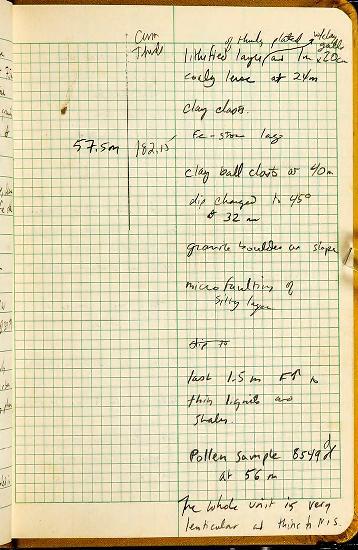 Cum
Thick
of thinly plated w/clay
galls
lithified layer/as 1m x20cm
coaly lense at 24m
clay clasts.
Fe-stone lags
57.5m 182.15
clay ball clasts at 40m
dip changed to 45°
@ 32 m
granite boulder on slope
microfaulting of
Silty layer
dip to
last 1.5 m F↑ to
thin lignite and
shales.
Pollen sample 8549
at 56 m
The whole unit is very
lenticular and thins to N.S.